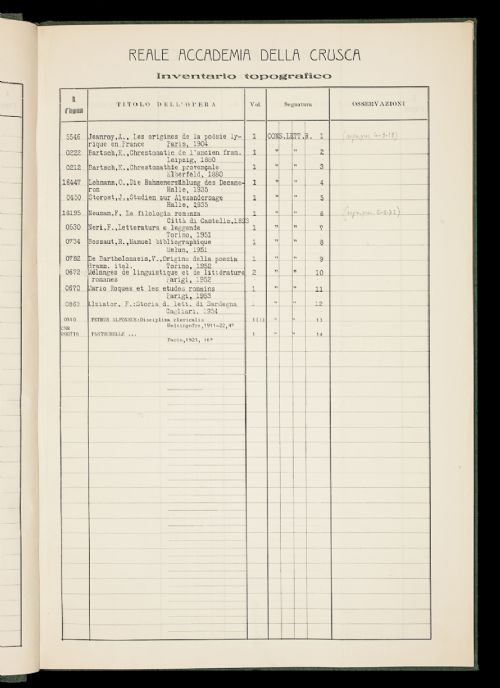 REALE ACCADEMIA DELLA CRUSCA
Inventario topografico
N d'ingresso TITOLO DELL'OPERA Vol. Segnatura OSSERVAZIONI
5546 Jeanroy,A., Les origines de la poésie ly- 1 CONS.LETT.R. 1
rique en France Paris, 1904
0222 Bartsch,K., Chrestomatie de l'ancien fran. 1 " " 2
Leipzig, 1880
0212 Bartsch,K., Chrestomathie provençale 1 " " 3
Elberfeld, 1880
16447 Lohmann,O., Die Rahmenerzählung des Decame- 1 " " 4
ron Halle, 1935
0450 Storost,J., Studien zur Alexandersage 1 " " 5
Halle, 1935
16195 Neuman,F, La filologia romanza 1 " " 6
Città di Castello, 1893
0530 Neri,F., Letteratura e leggende 1 " " 7
Torino, 1951
0734 Bossuat,R., Manuel bibliographique 1 " " 8
Melun, 1951
0782 De Bartholomaeis,V., Origini della poesia 1 " " 9
dramm. ital. Torino, 1952
0672 Mélanges de linguistique et de littérature 2 " " 10
romanes Parigi, 1952
0870 Mario Roques et les etudes romains 1 " " 11
Parigi, 1953
0869 Alziator, F.: Storia d. lett. di Sardegna 1 " " 12
Cagliari, 1954
PETRUS ALFONSUS: Disciplina clericalis 1(1) " " 13
Helsingofrs, 1911-22, 4°
CNR
PASTOURELLE ... 1 " " 14
Paris, 1923, 16°